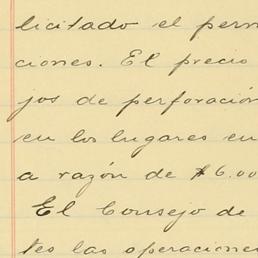 licitado el perm
ciones. El precio
jos de perforación
en los lugares en
a razón de $6.00
El Consejo de
tes las operacione